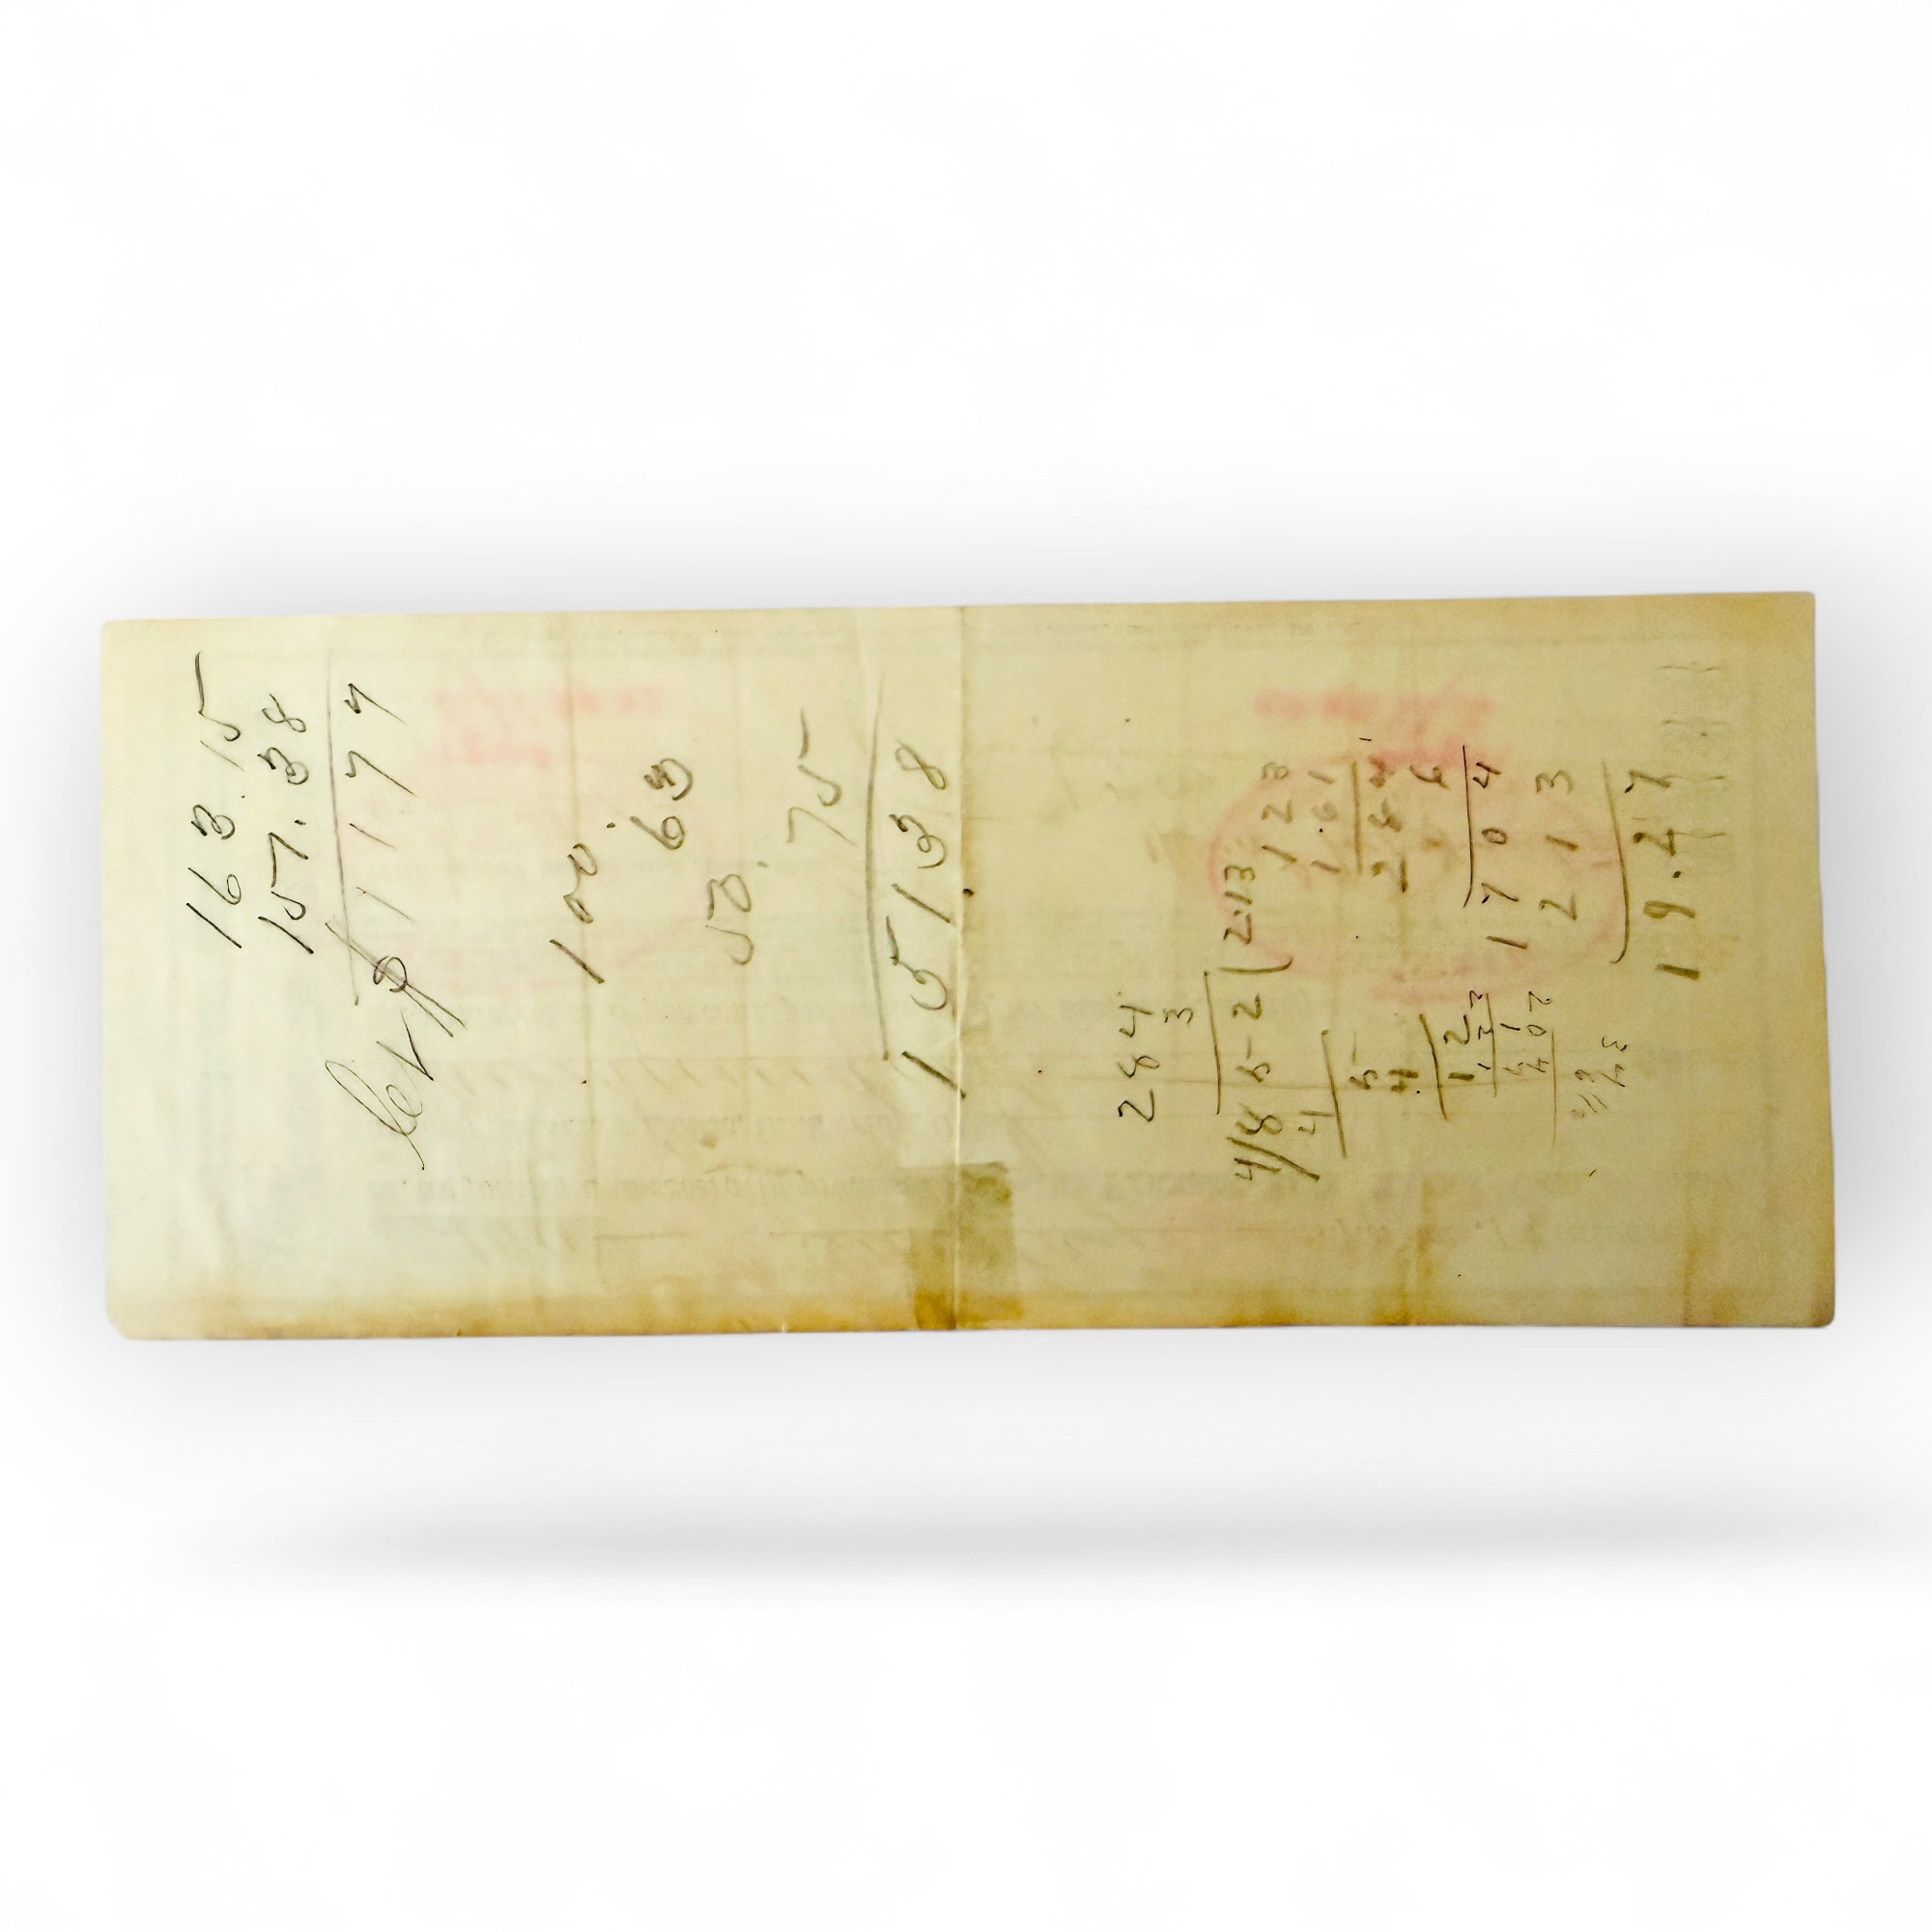 163.15
157.38
1177
100.
63
53.
75
15138
284
3
4/852(2.13
4
5
4
12
123
1.61
284
6
1704
213
19.27